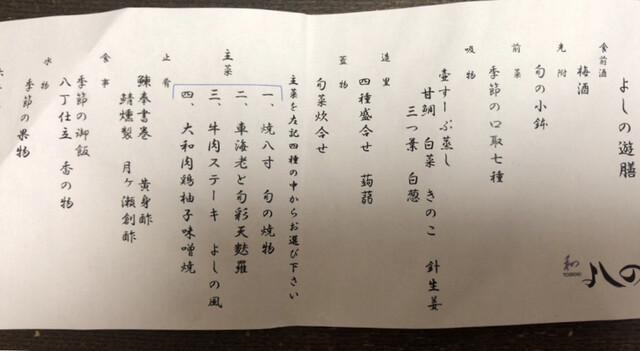 よしの遊膳
食前酒
梅酒
先附
旬の小鉢
前菜
季節の口取七種
吸物
壷すーぷ蒸し
甘鯛 白菜 きのこ 針生姜
三つ葉 白葱
造里
四種盛合せ 蒟蒻
蓋物
旬菜炊合せ
主菜を左記四種の中からお選び下さい
主菜
一、焼八寸 旬の焼物
二、車海老と旬彩天麩羅
三、牛肉ステーキ よしの風
四、大和肉鶏柚子味噌焼
止肴
鰊奉書巻 黄身酢
鯖燻製 月ヶ瀬創酢
食事
季節の御飯
八丁仕立 香の物
水物
季節の果物
和
よしの
YOSHINO